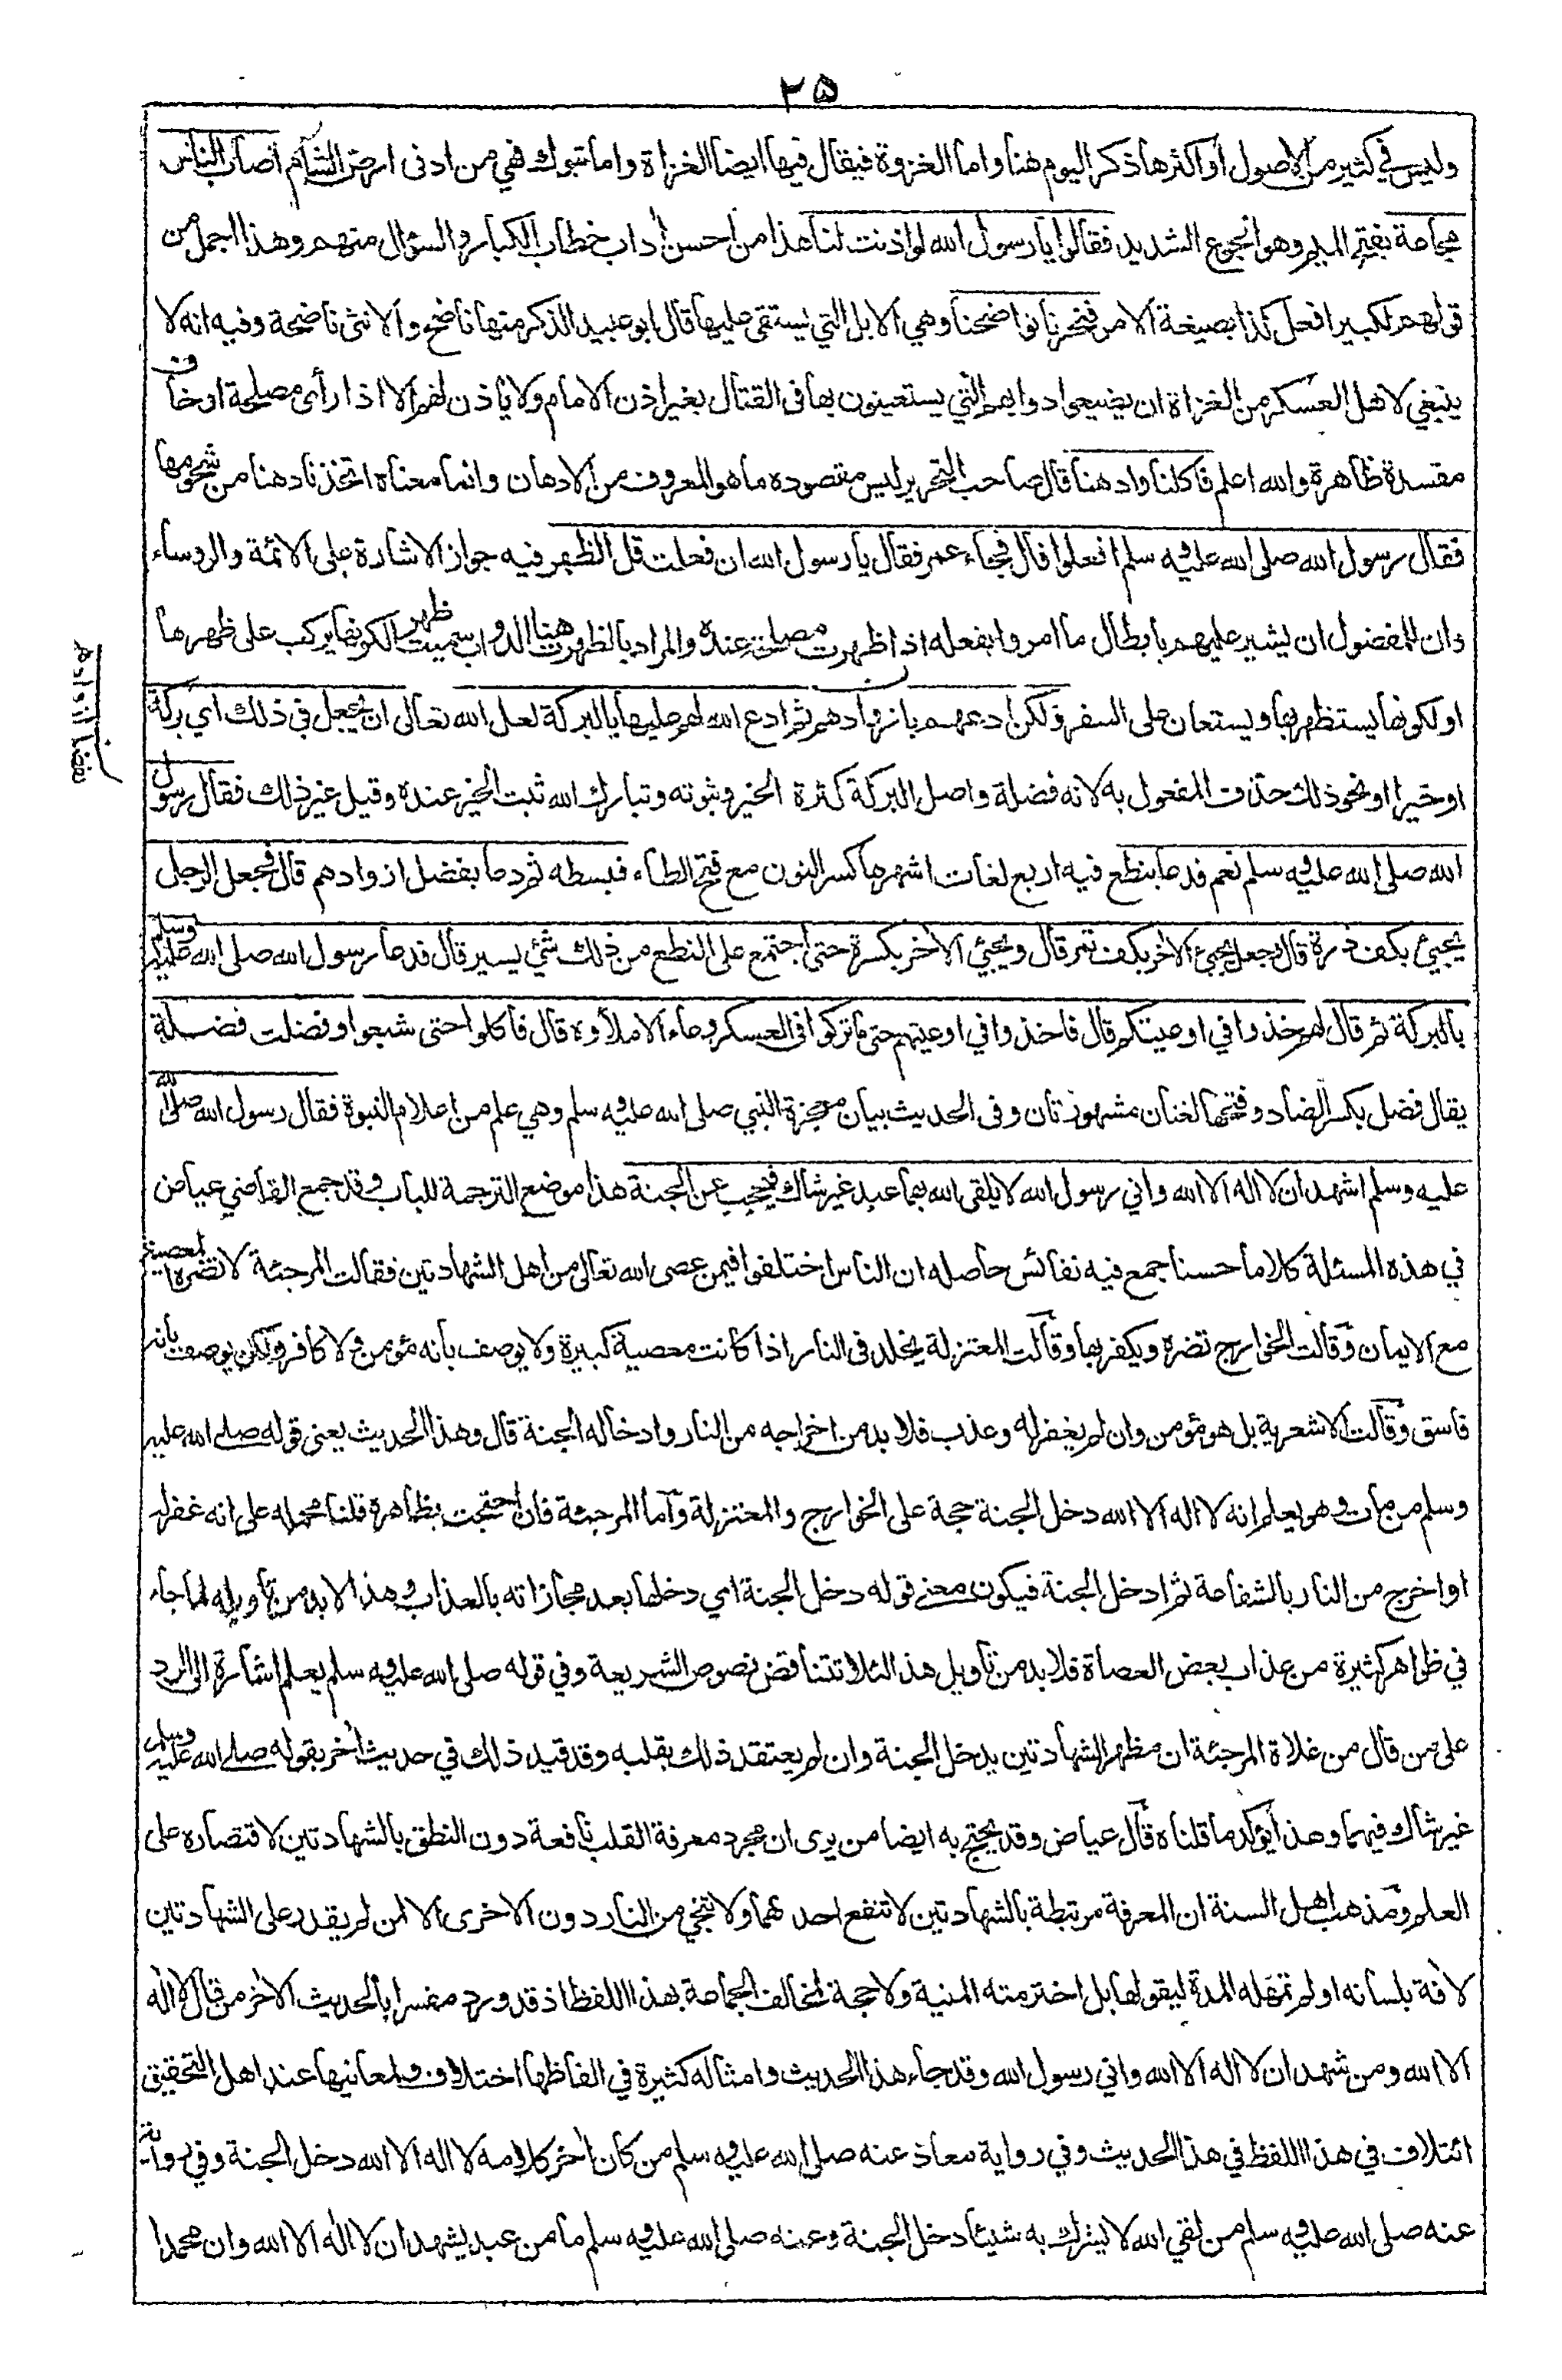 ٢٥
وليس في كثير من الاصول او اكثرها ذكر اليوم هنا واما الغزوة فيقال فيها ايضا الغزاة واما تبوك فهي من ادنى ارض الشام اصاب الناس
مجاعة بفتح الميم وهو الجوع الشديد فقالوا يا رسول الله لو اذنت لنا هذا من احسن اداب خطاب الكبار والسؤال منهم وهذا اجمل من
قولهم لكبير افعل كذا بصيغة الامر فنحرنا نواضحنا وهي الابل التي يستقى عليها قال ابو عبيد الذكر منها ناضح والانثى ناضحة وفيه انه لا
ينبغي لاهل العسكر من الغزاة ان يضيعوا دوابهم التي يستعينون بها في القتال بغير اذن الامام ولا ياذن لهم الا اذا رأى مصلحة او خاف
مفسدة ظاهرة والله اعلم فاكلنا وادهنا قال صاحب التحرير ليس مقصوده ما هو المعروف من الادهان وانما معناه اتخذنا دهنا من شحومها
فقال رسول الله صلى الله عليه وسلم افعلوا قال فجاء عمر فقال يا رسول الله ان فعلت قل الظهر فيه جواز الاشارة على الائمة والروساء
وان للمفضول ان يشير عليهم بابطال ما امروا بفعله اذا ظهرت مصلحة عنده والمراد بالظهر هنا الدواب سميت ظهرا لكونها يركب على ظهرها
او لكونها يستظهر بها ويستعان على السفر ولكن ادعهم بازوادهم ثم ادع الله لهم عليها بالبركة لعل الله تعالى ان يجعل في ذلك اي بركة
او خيرا او نحو ذلك حذف المفعول به لانه فضلة واصل البركة كثرة الخير وثبوته وتبارك الله ثبت الخير عنده وقيل غير ذلك فقال رسول
الله صلى الله عليه وسلم نعم فدعا بنطع فيه اربع لغات اشهرها كسر النون مع فتح الطاء فبسطه ثم دعا بفضل ازوادهم قال فجعل الرجل
يجيئ بكف ذرة قال وجعل يجيئ الاخر بكف تمر قال ويجيئ الاخر بكسرة حتى اجتمع على النطع من ذلك شئ يسير قال فدعا رسول الله صلى الله عليه وسلم
بالبركة ثم قال لهم خذوا في اوعيتكم قال فاخذوا في اوعيتهم حتى ما تركوا في العسكر وعاء الا ملأوه قال فاكلوا حتى شبعوا وفضلت فضلة
يقال فضل بكسر الضاد وفتحها لغتان مشهورتان وفي الحديث بيان معجزة النبي صلى الله عليه وسلم وهي علم من اعلام النبوة فقال رسول الله صلى الله
عليه وسلم اشهد ان لا اله الا الله واني رسول الله لا يلقى الله بهما عبد غير شاك فيحجب عن الجنة هذا موضع الترجمة للباب وقد جمع القاضي عياض
في هذه المسئلة كلاما حسنا جمع فيه نفائس حاصله ان الناس اختلفوا فيمن عصى الله تعالى من اهل الشهادتين فقالت المرجئة لا تضره المعصية
مع الايمان وقالت الخوارج تضره ويكفر بها وقالت المعتزلة يخلد في النار اذا كانت معصية كبيرة ولا يوصف بأنه مؤمن ولا كافر ولكن يوصف بانه
فاسق وقالت الاشعرية بل هو مؤمن وان لم يغفر له وعذب فلا بد من اخراجه من النار وادخاله الجنة قال وهذا الحديث يعني قوله صلى الله عليه
وسلم من مات وهو يعلم انه لا اله الا الله دخل الجنة حجة على الخوارج والمعتزلة وأما المرجئة فان احتجت بظاهره قلنا محمله على انه غفر له
او اخرج من النار بالشفاعة ثم ادخل الجنة فيكون معنى قوله دخل الجنة اي دخلها بعد مجازاته بالعذاب وهذا لا بد من تأويله لما جاء
في ظواهر كثيرة من عذاب بعض العصاة فلا بد من تأويل هذا لئلا تتناقض نصوص الشريعة وفي قوله صلى الله عليه وسلم يعلم اشارة الى الرد
على من قال من غلاة المرجئة ان مظهر الشهادتين يدخل الجنة وان لم يعتقد ذلك بقلبه وقد قيد ذلك في حديث اخر بقوله صلى الله عليه وسلم
غير شاك فيهما وهذا يؤكد ما قلناه قال عياض وقد يحتج به ايضا من يرى ان مجرد معرفة القلب نافعة دون النطق بالشهادتين لاقتصاره على
العلم ومذهب اهل السنة ان المعرفة مرتبطة بالشهادتين لا تنفع احدهما ولا تنجي من النار دون الاخرى الا لمن لم يقدر على الشهادتين
لافة بلسانه او لم تمهله المدة ليقولها بل اخترمته المنية ولا حجة لمخالف الجماعة بهذا اللفظ اذ قد ورد مفسرا بالحديث الاخر من قال لا اله
الا الله ومن شهد ان لا اله الا الله واني رسول الله وقد جاء هذا الحديث وامثاله كثيرة في الفاظها اختلاف ولمعانيها عند اهل التحقيق
ائتلاف في هذا اللفظ في هذا الحديث وفي رواية معاذ عنه صلى الله عليه وسلم من كان اخر كلامه لا اله الا الله دخل الجنة وفي رواية
عنه صلى الله عليه وسلم من لقي الله لا يشرك به شيئا دخل الجنة وعنه صلى الله عليه وسلم ما من عبد يشهد ان لا اله الا الله وان محمدا